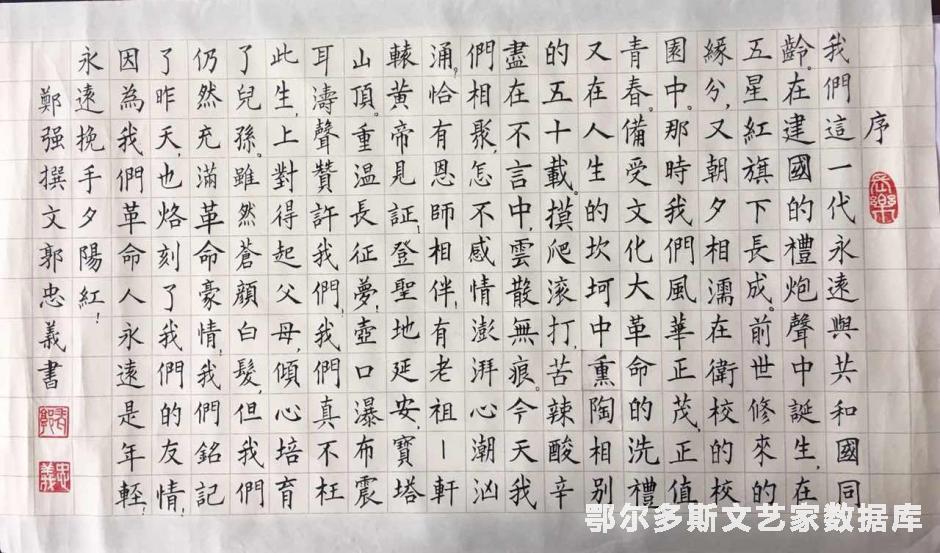 序
我們這一代永遠與共和國同
齡。在建國的禮炮聲中誕生,在
五星紅旗下長成。前世修來的
緣分,又朝夕相濡在衛校的校
園中。那時我們風華正茂,正值
青春。備受文化大革命的洗禮
又在人生的坎坷中熏陶相別
的五十載。摸爬滾打,苦辣酸辛
盡在不言中,雲散無痕。今天我
們相聚,怎不感情澎湃心潮洶
涌,恰有恩師相伴,有老祖—軒
轅黃帝見証,登聖地延安,寶塔
山頂。重溫長征夢,壺口瀑布震
耳濤聲贊許我們,我們真不枉
此生,上對得起父母,傾心培育
了兒孫。雖然蒼顏白髮,但我們
仍然充滿革命豪情,我們銘記
了昨天,也烙刻了我們的友情,
因為我們革命人永遠是年輕,
永遠挽手夕陽紅!
鄭强撰文郭忠義書
忠義
鄂尔多斯文艺家数据库